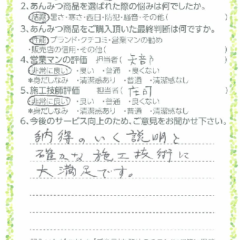 2.あんみつ商品を選ばれた際の悩みは何でしたか。
結露・暑さ・寒さ・西日・防犯・騒音・その他(　　　)
3.あんみつ商品をご購入頂いた最終判断は何ですか。
性能・ブランド・クチコミ・営業マンの勧め
・販売店の信用・その他(　　　)
4.営業マンの評価　担当者(　　　)
非常に良い・良い・普通・良くない
★身だしなみ　・清潔感あり　・普通　・清潔感なし
5.施工技師評価　担当者(庄司)
非常に良い・良い・普通・良くない
★身だしなみ　・清潔感あり　・普通　・清潔感なし
6.今後のサービス向上のため、ご意見をお聞かせ下さい。
納得のいく説明と
確かな施工技術に
大満足です。